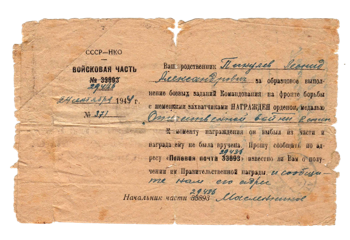 СССР—НКО
ВОЙСКОВАЯ ЧАСТЬ
№ 33893
29486
1944 г.
№ 371
Ваш родственник Леонид
Александрович за образцовое выпол-
нение боевых заданий Командования на фронте борьбы
с немецкими захватчиками НАГРАЖДЕН орденом, медалью
Отечественной войны
К моменту награждения он выбыл из части и
награда ему не была вручена. Прошу сообщить по ад-
29486
ресу «Полевая почта 33893» известно ли Вам о получе-
нии им Правительственной награды и сообщи-
те нам его адрес
29486
Начальник части 33893 Масленников